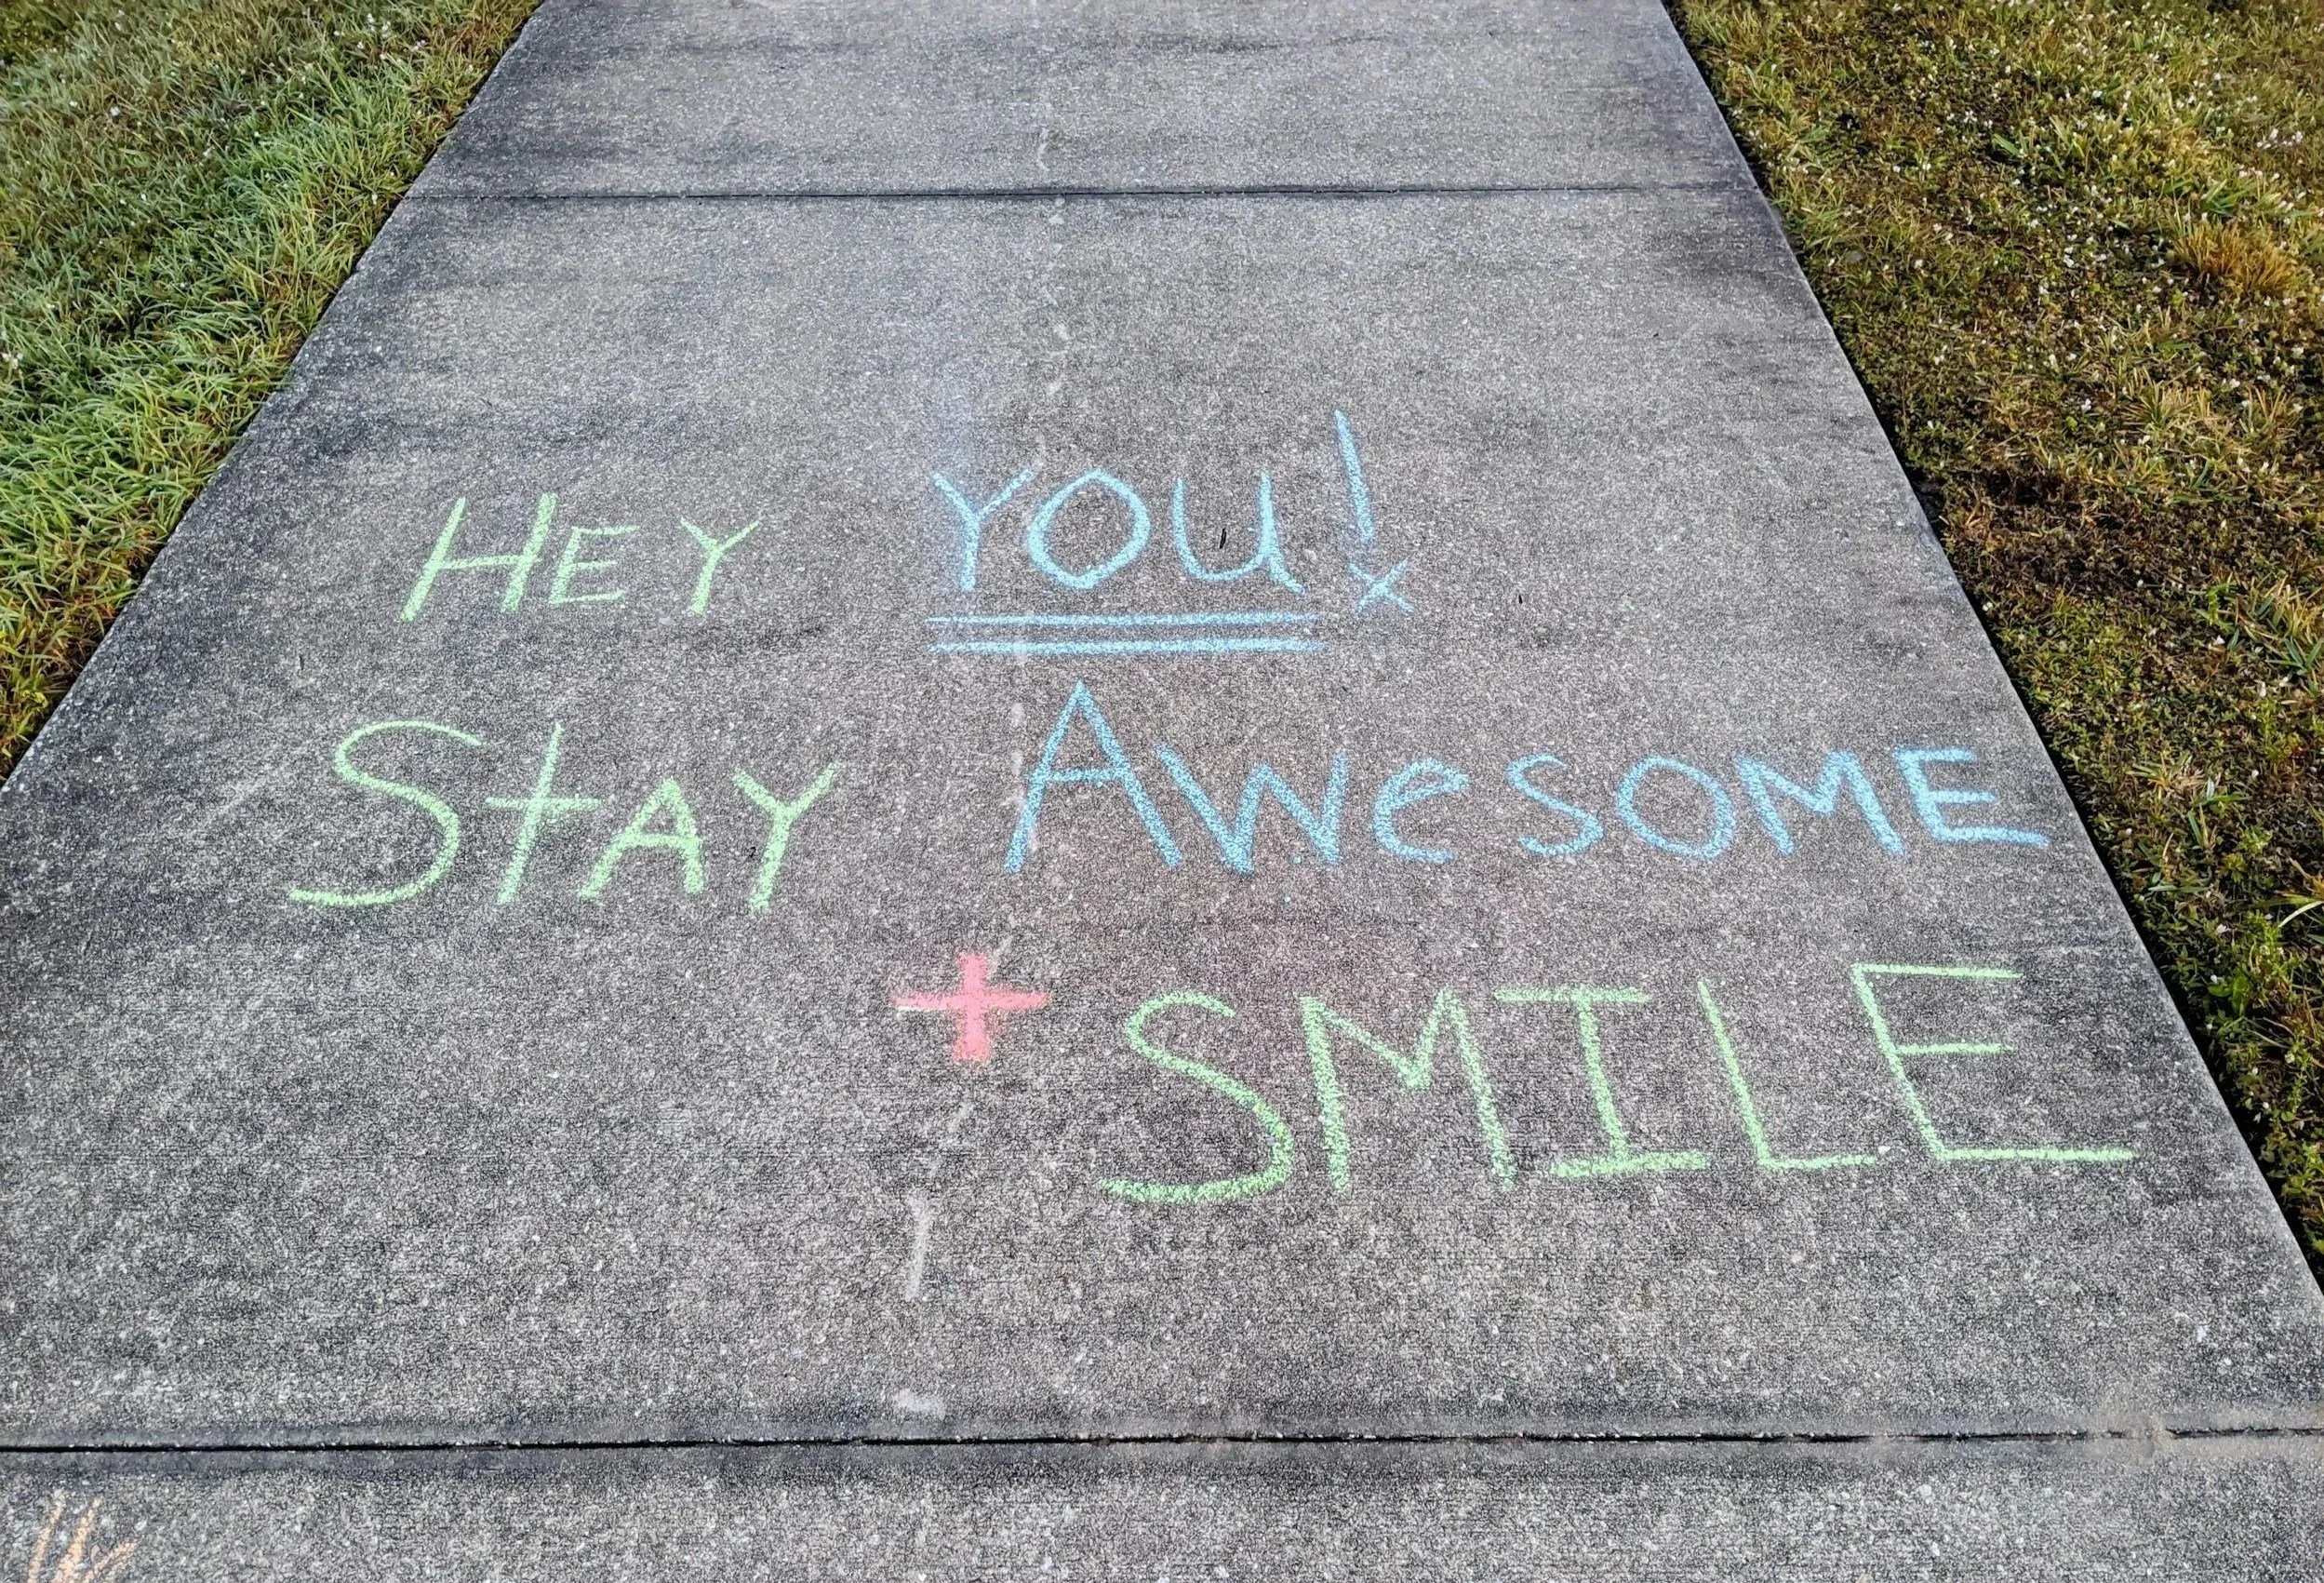 HEY YOU!
StAY AWeSOME
+ SMILE